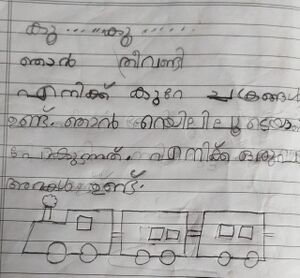 കൂ ........ കൂ ........
ഞാൻ തീവണ്ടി
എനിക്ക് കുറേ ചക്രങ്ങൾ
ഉണ്ട്. ഞാൻ റെയിലിലൂടെയാ
പോകുന്നത്. എനിക്ക് ഒരുപാ
അറകൾ ഉണ്ട്.